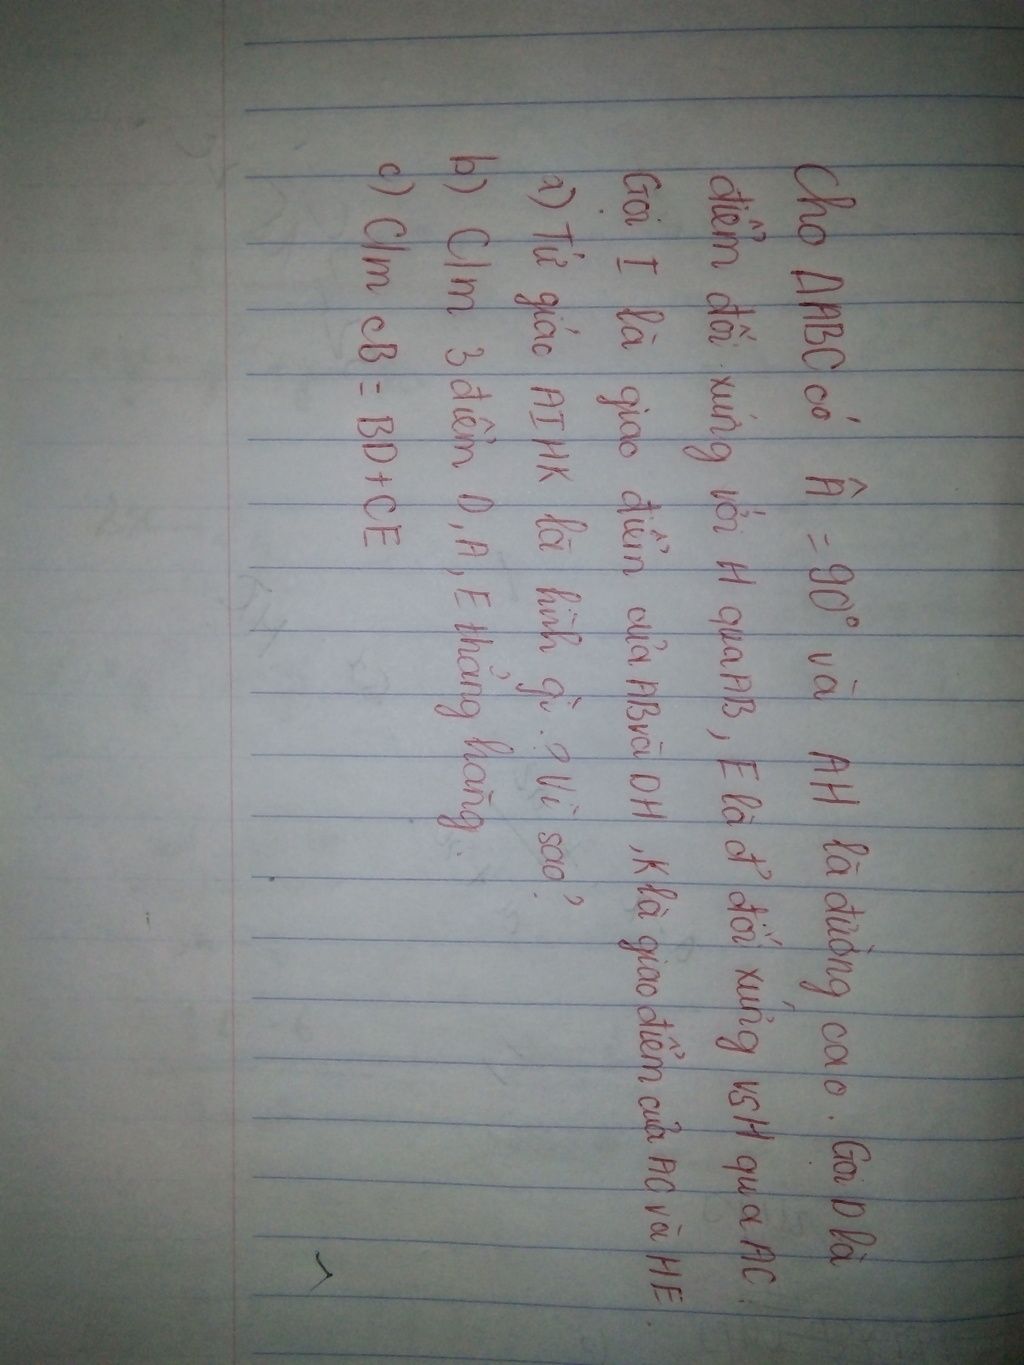 Cho ΔABC có Â = 90° và AH là đường cao. Gọi D là
điểm đối xứng với H qua AB, E là đ' đối xứng vs H qua AC.
Gọi I là giao điểm của AB và DH, K là giao điểm của AC và HE
a) Tứ giác AIHK là hình gì.? Vì sao?
b) C/m 3 điểm D, A, E thẳng hàng.
c) C/m CB = BD + CE